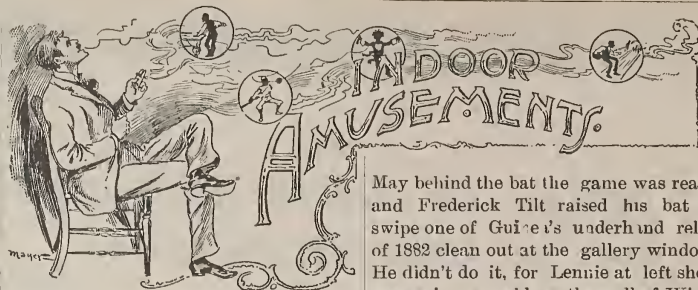 INDOOR
AMUSEMENTS.
May behind the bat the game was rea
and Frederick Tilt raised his bat
swipe one of underhand rel
of 1882 clean out at the gallery windo
He didn't do it, for Lennie at left sho